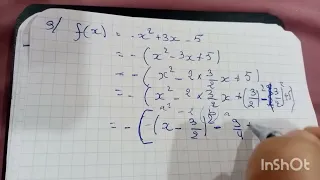 3/ f(x) = - x² + 3x - 5
= - (x² - 3x + 5)
= - (x² - 2 × 3/2 x + 5)
= - (x² - 2 × 3/2 x + (3/2)² -
a²
= - ( (x - 3/2)² - 3/4 +
InShOt